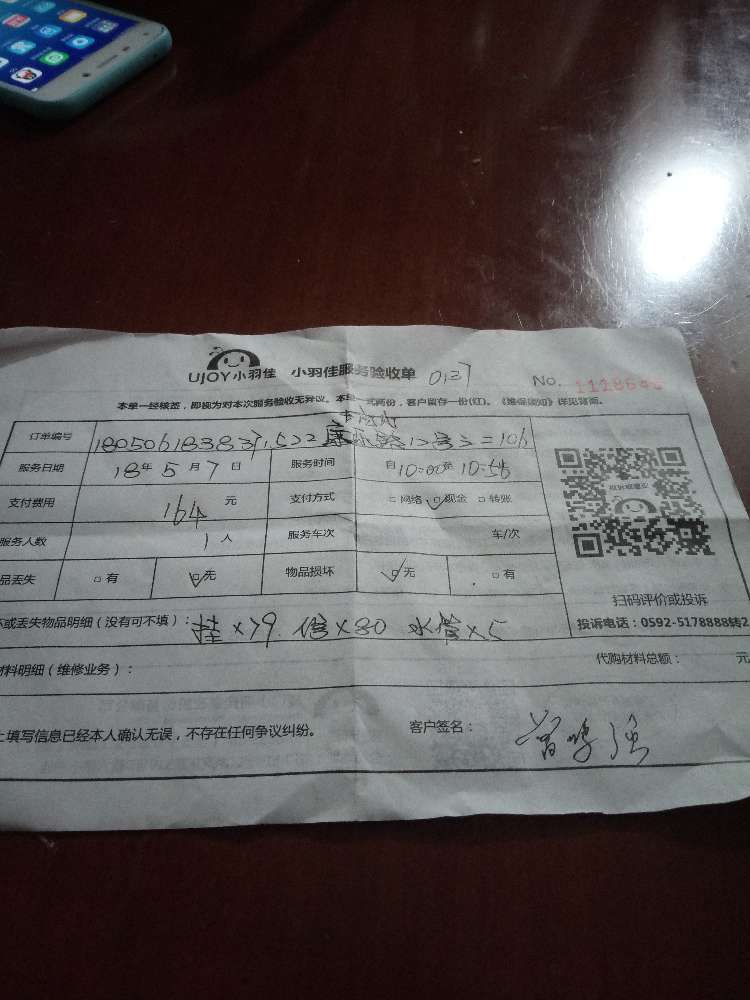 UJOY小羽佳 小羽佳服务验收单 0137 No.
本单一经核签，即视为对本次服务验收无异议。本单一式两份，客户留存一份(红)。《维保须知》详见背面。
订单编号
服务日期 18年5月7日 服务时间 自10:00至
支付费用 164元 支付方式 □网络 □现金 □转账
服务人数 1人 服务车次 车/次
品丢失 □有 □无 物品损坏 □无 □有
扫码评价或投诉
投诉电话：0592-5178888转2
坏或丢失物品明细（没有可不填）： 挂×79 ×80 水管×5
材料明细（维修业务）： 代购材料总额： 元
上填写信息已经本人确认无误，不存在任何争议纠纷。 客户签名：